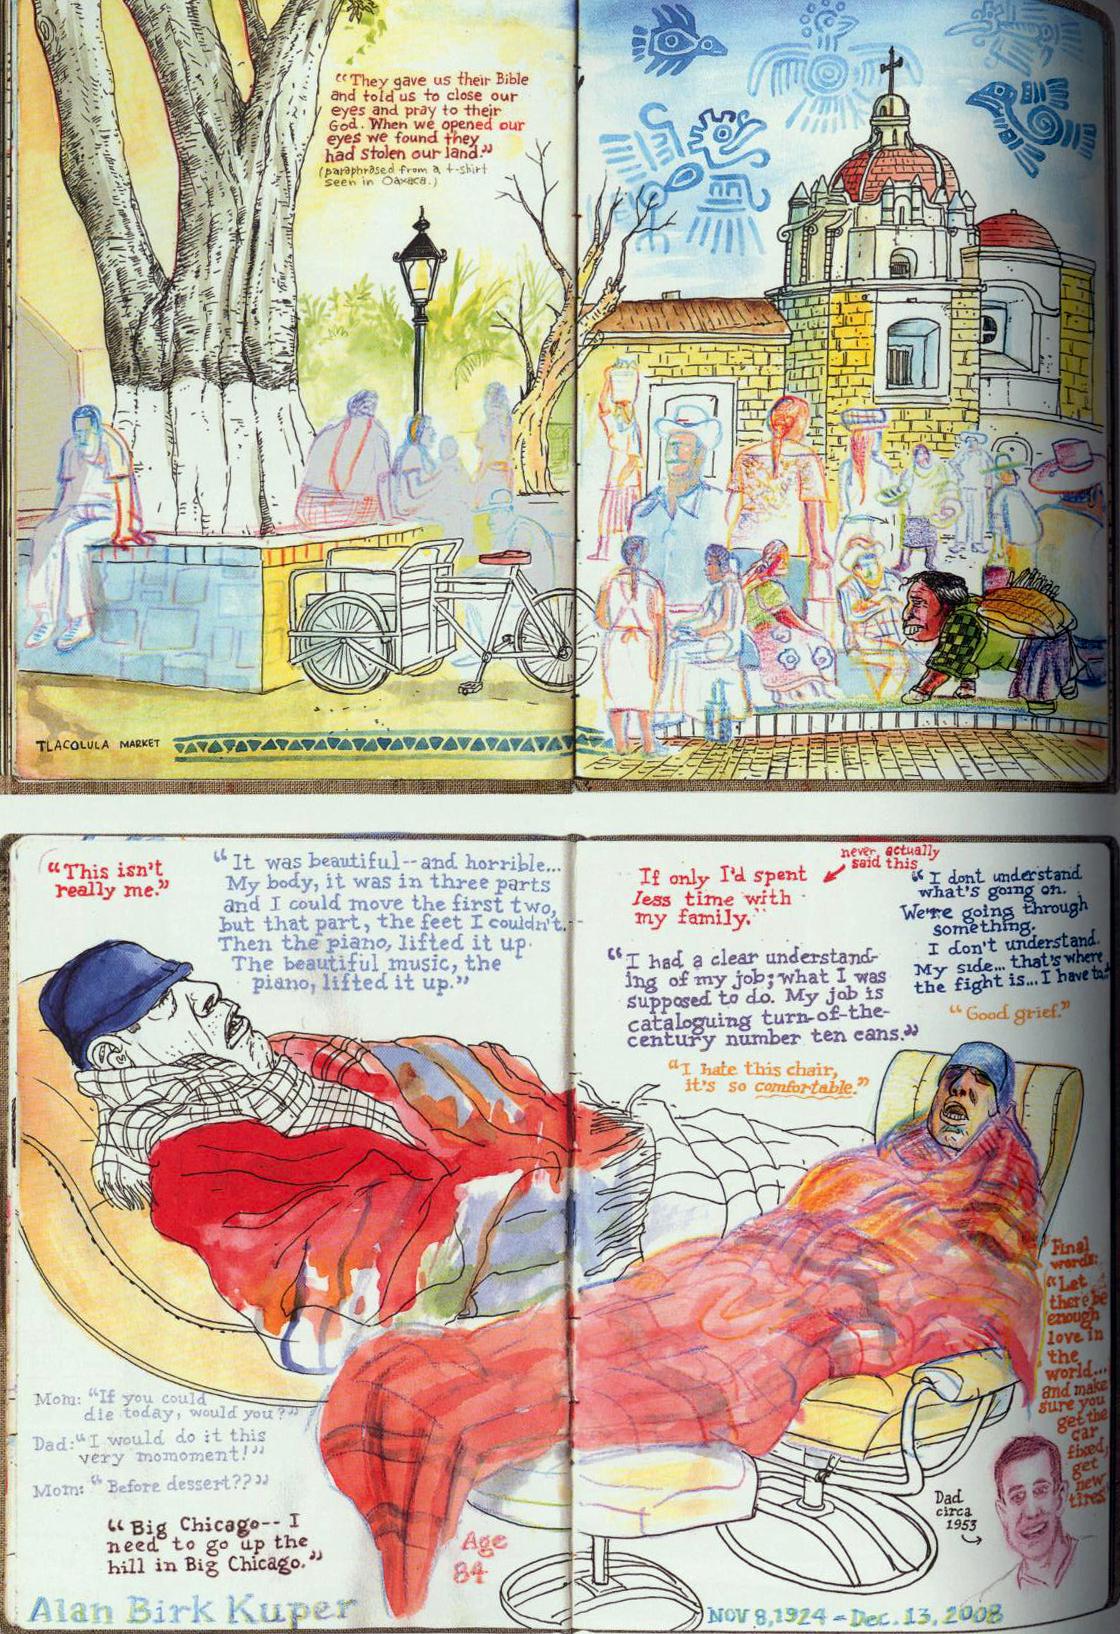 “They gave us their Bible
and told us to close our
eyes and pray to their
God. When we opened our
eyes we found they
had stolen our land.”
(paraphrased from a t-shirt
seen in Oaxaca.)
TLACOLULA MARKET
“This isn't
really me.”
“It was beautiful--and horrible...
My body, it was in three parts
and I could move the first two,
but that part, the feet I couldn't.
Then the piano, lifted it up.
The beautiful music, the
piano, lifted it up.”
If only I'd spent
less time with
my family.”
never actually
said this
“I dont understand
what's going on.
We're going through
something.
I don't understand.
My side... that's where
the fight is... I have to..
“Good grief.”
“I had a clear understand-
ing of my job; what I was
supposed to do. My job is
cataloguing turn-of-the-
century number ten cans.”
“I hate this chair,
it's so comfortable.”
Final
words:
“Let
there be
enough
love in
the
world...
and make
sure you
get the
car
fixed,
get
new
tires
Mom: “If you could
die today, would you?”
Dad: “I would do it this
very momoment!”
Mom: “Before dessert??”
“Big Chicago-- I
need to go up the
hill in Big Chicago.”
Age
84
Dad
circa
1953
Alan Birk Kuper
NOV 8, 1924 - Dec. 13, 2008